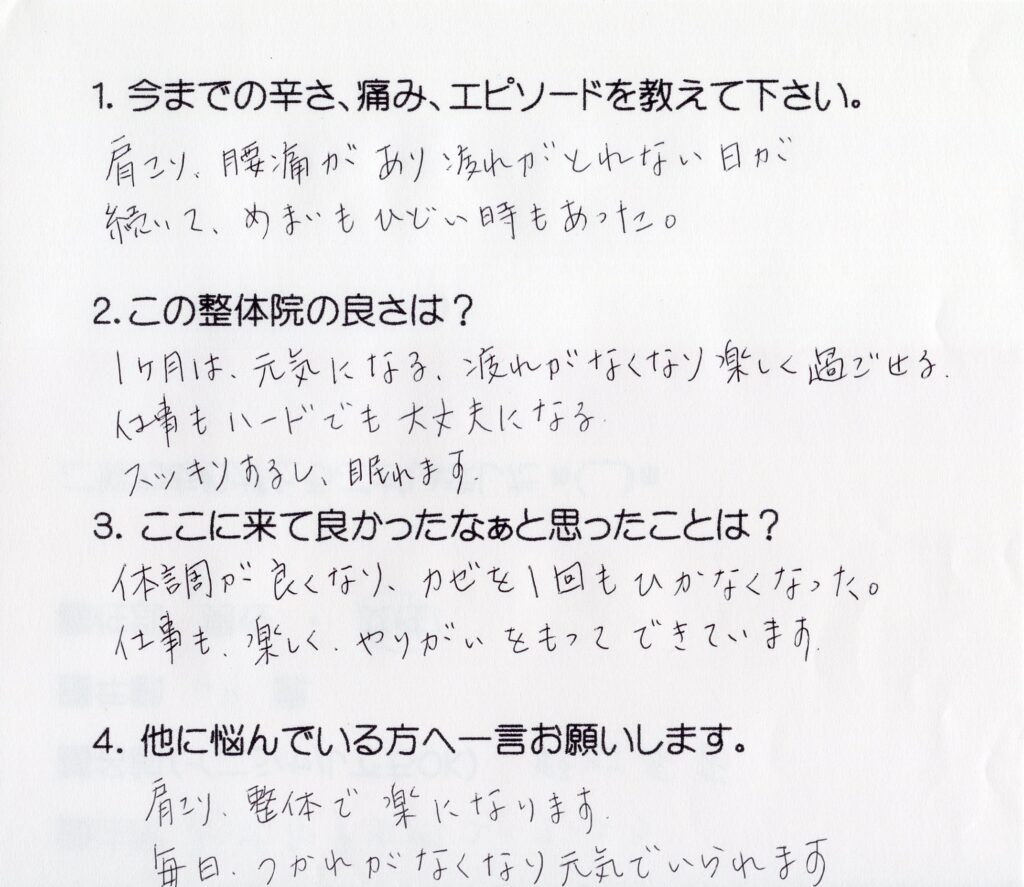 1. 今までの辛さ、痛み、エピソードを教えて下さい。
肩こり、腰痛があり疲れがとれない日が
続いて、めまいもひどい時もあった。
2.この整体院の良さは？
1ヶ月は、元気になる、疲れがなくなり楽しく過ごせる.
仕事もハードでも大丈夫になる.
スッキリするし、眠れます.
3. ここに来て良かったなぁと思ったことは？
体調が良くなり、カゼを1回もひかなくなった。
仕事も、楽しく、やりがいをもってできています.
4. 他に悩んでいる方へ一言お願いします。
肩こり、整体で楽になります.
毎日、つかれがなくなり元気でいられます